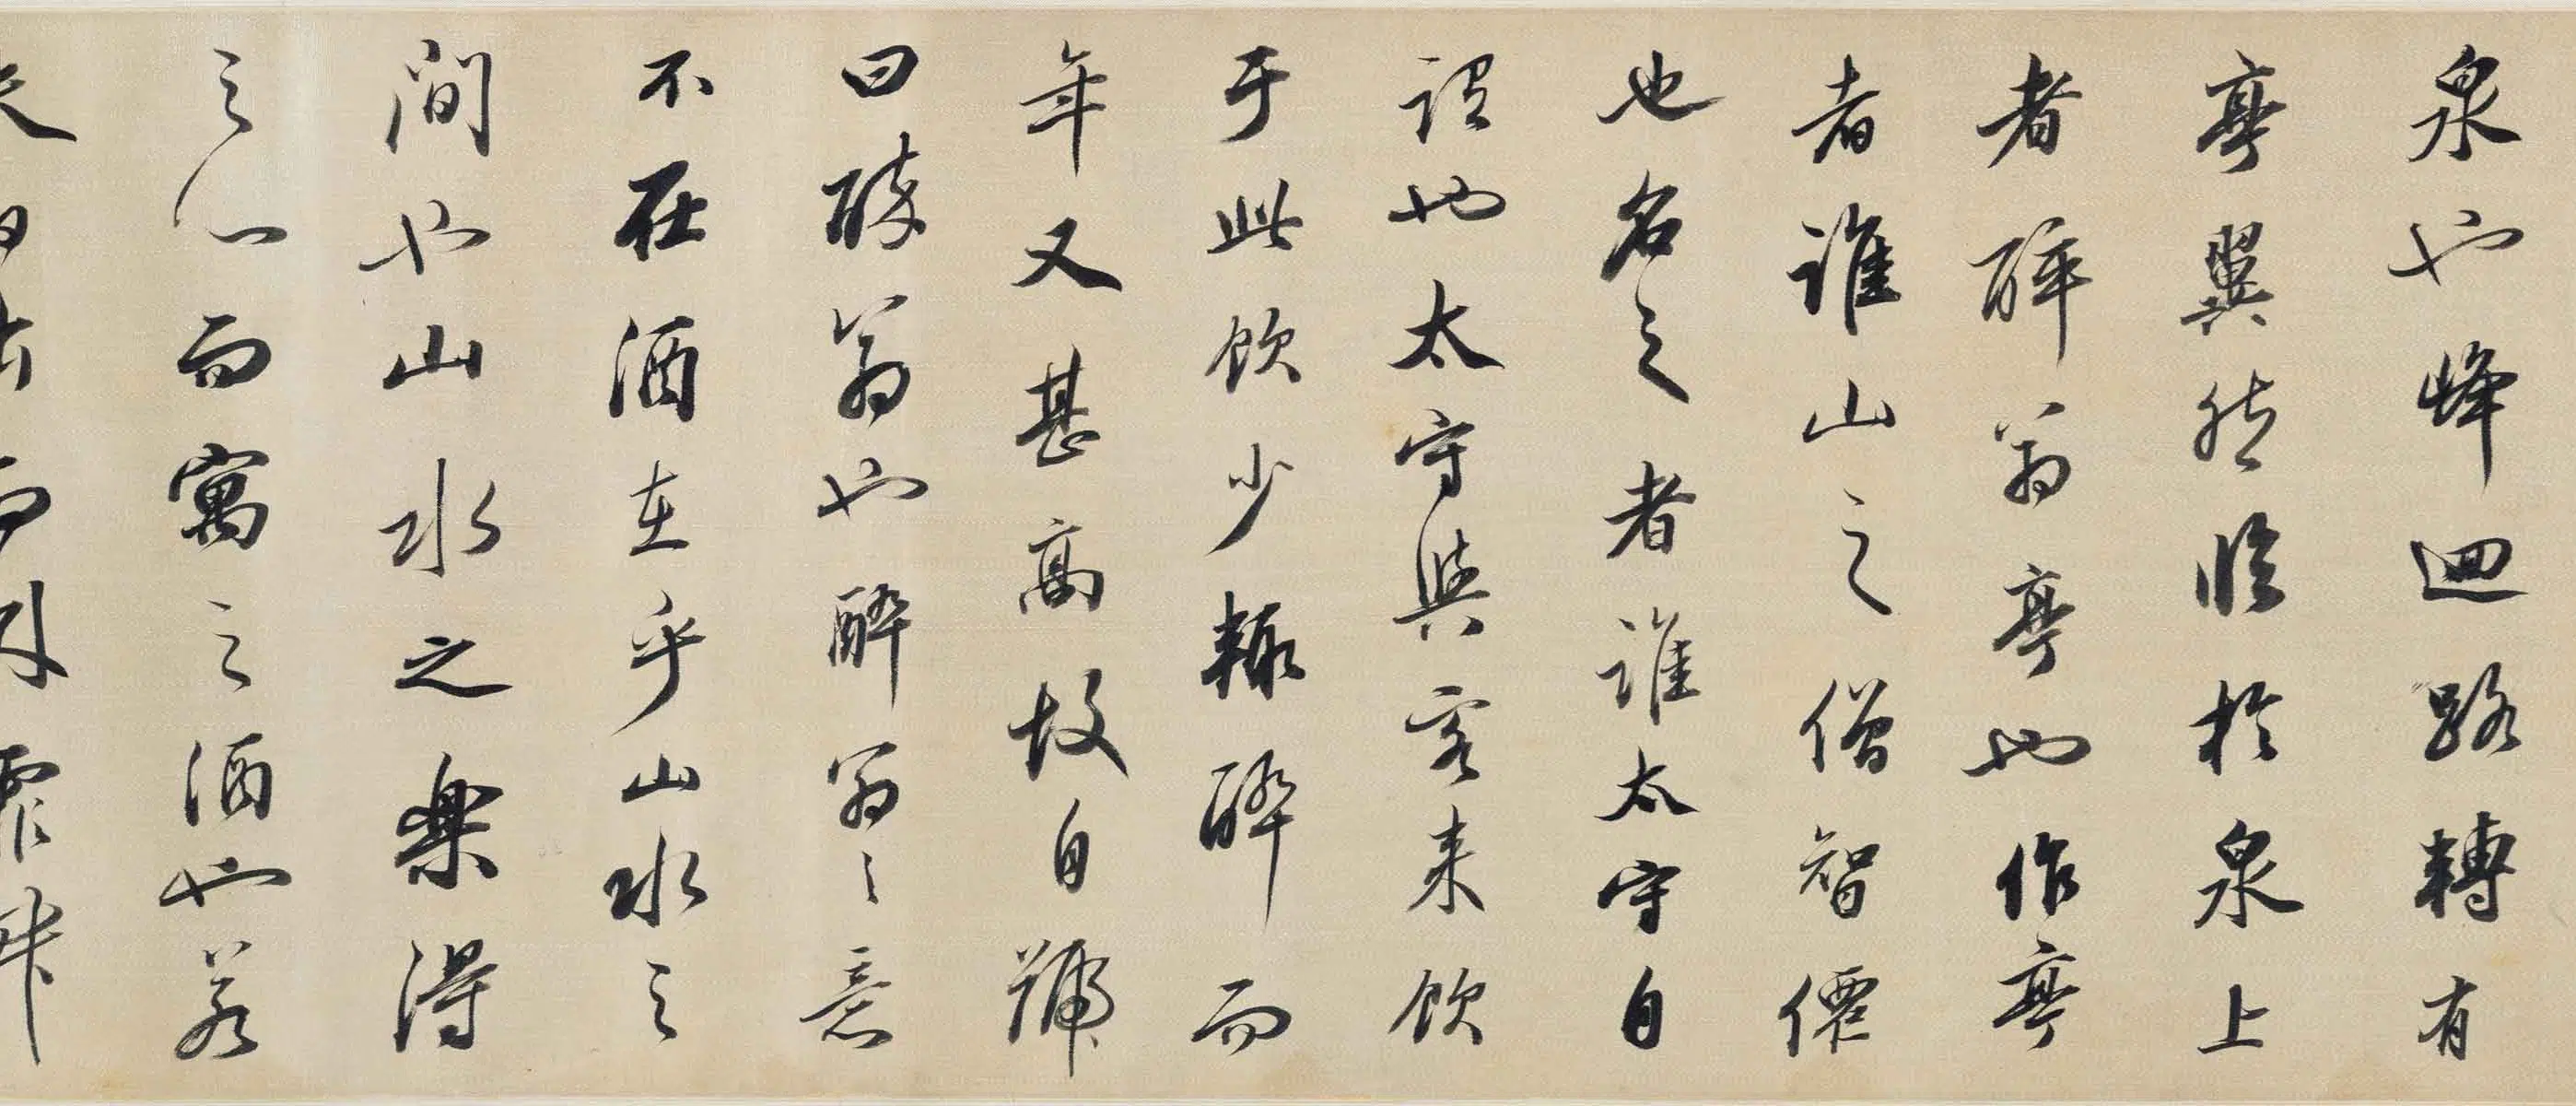 泉也峰迴路轉有
亭翼然臨於泉上
者醉翁亭也作亭
者誰山之僧智僊
也名之者誰太守自
謂也太守與客來飲
于此飲少輒醉而
年又甚高故自號
曰醉翁也醉翁之意
不在酒在乎山水之
間也山水之樂得
之心而寓之酒也若
夫日出而林霏